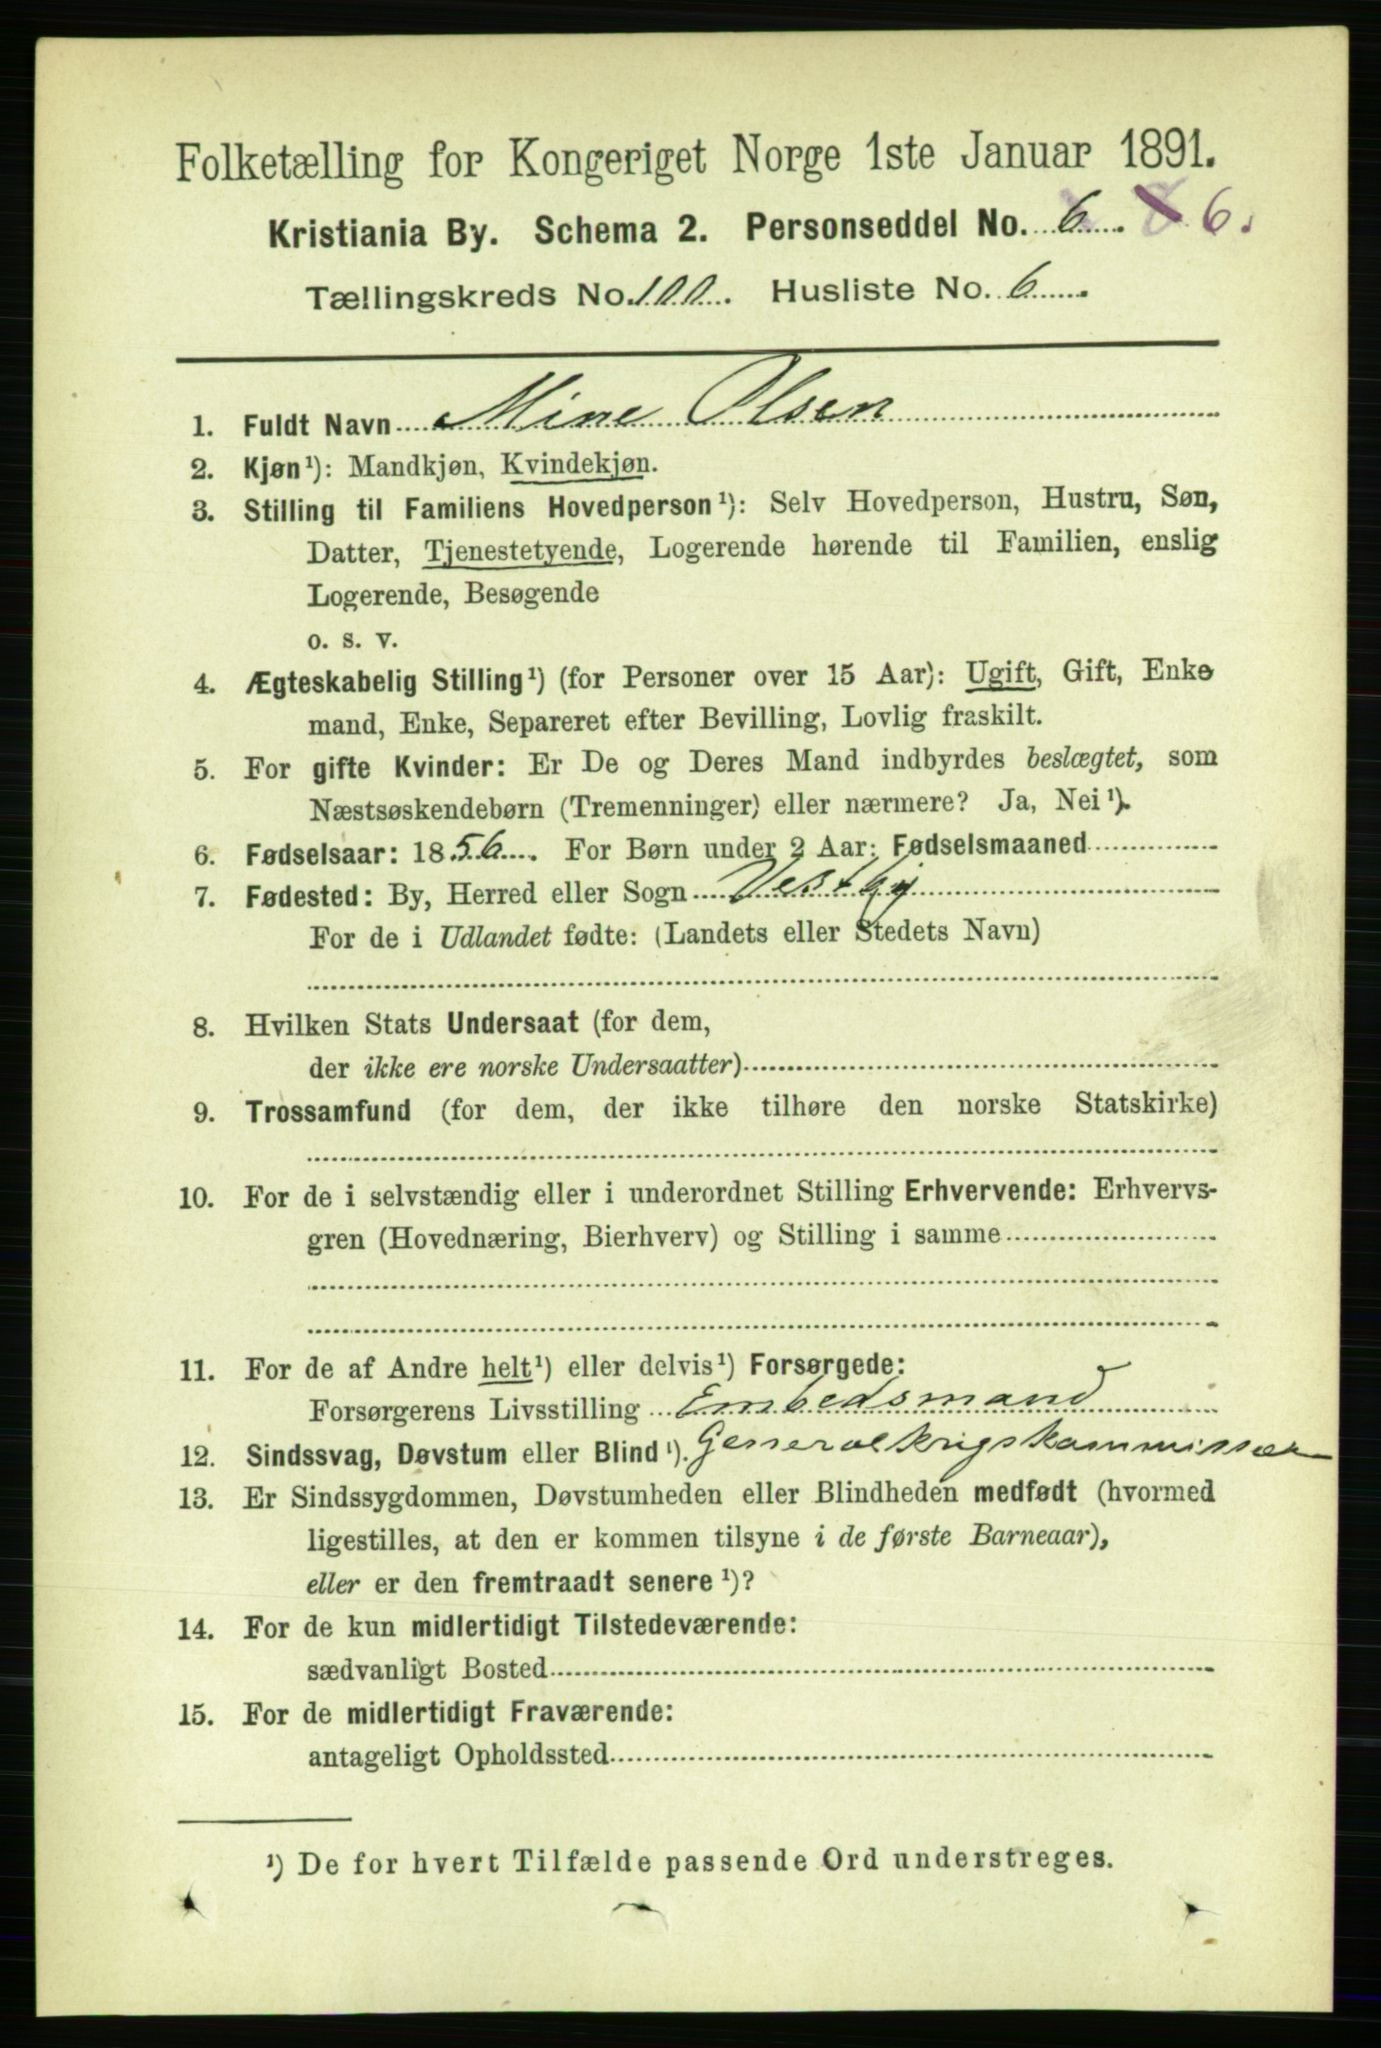 Folketælling for Kongeriget Norge 1ste Januar 1891.
Kristiania By. Schema 2. Personseddel No. 6. 8 6.
Tællingskreds No. 100. Husliste No. 6
1. Fuldt Navn Mine Olsen
2. Kjøn¹): Mandkjøn, Kvindekjøn.
3. Stilling til Familiens Hovedperson¹): Selv Hovedperson, Hustru, Søn,
Datter, Tjenestetyende, Logerende hørende til Familien, enslig
Logerende, Besøgende
o. s. v.
4. Ægteskabelig Stilling¹) (for Personer over 15 Aar): Ugift, Gift, Enke
mand, Enke, Separeret efter Bevilling, Lovlig fraskilt.
5. For gifte Kvinder: Er De og Deres Mand indbyrdes beslægtet, som
Næstsøskendebørn (Tremenninger) eller nærmere? Ja, Nei¹).
6. Fødselsaar: 1856. For Børn under 2 Aar: Fødselsmaaned
7. Fødested: By, Herred eller Sogn Vestby
For de i Udlandet fødte: (Landets eller Stedets Navn)
8. Hvilken Stats Undersaat (for dem,
der ikke ere norske Undersaatter)
9. Trossamfund (for dem, der ikke tilhøre den norske Statskirke)
10. For de i selvstændig eller i underordnet Stilling Erhvervende: Erhvervs-
gren (Hovednæring, Bierhverv) og Stilling i samme
11. For de af Andre helt¹) eller delvis¹) Forsørgede:
Forsørgerens Livsstilling Embedsmand
12. Sindssvag, Døvstum eller Blind¹). Generalkrigskommissær
13. Er Sindssygdommen, Døvstumheden eller Blindheden medfødt (hvormed
ligestilles, at den er kommen tilsyne i de første Barneaar),
eller er den fremtraadt senere¹)?
14. For de kun midlertidigt Tilstedeværende:
sædvanligt Bosted
15. For de midlertidigt Fraværende:
antageligt Opholdssted
¹) De for hvert Tilfælde passende Ord understreges.